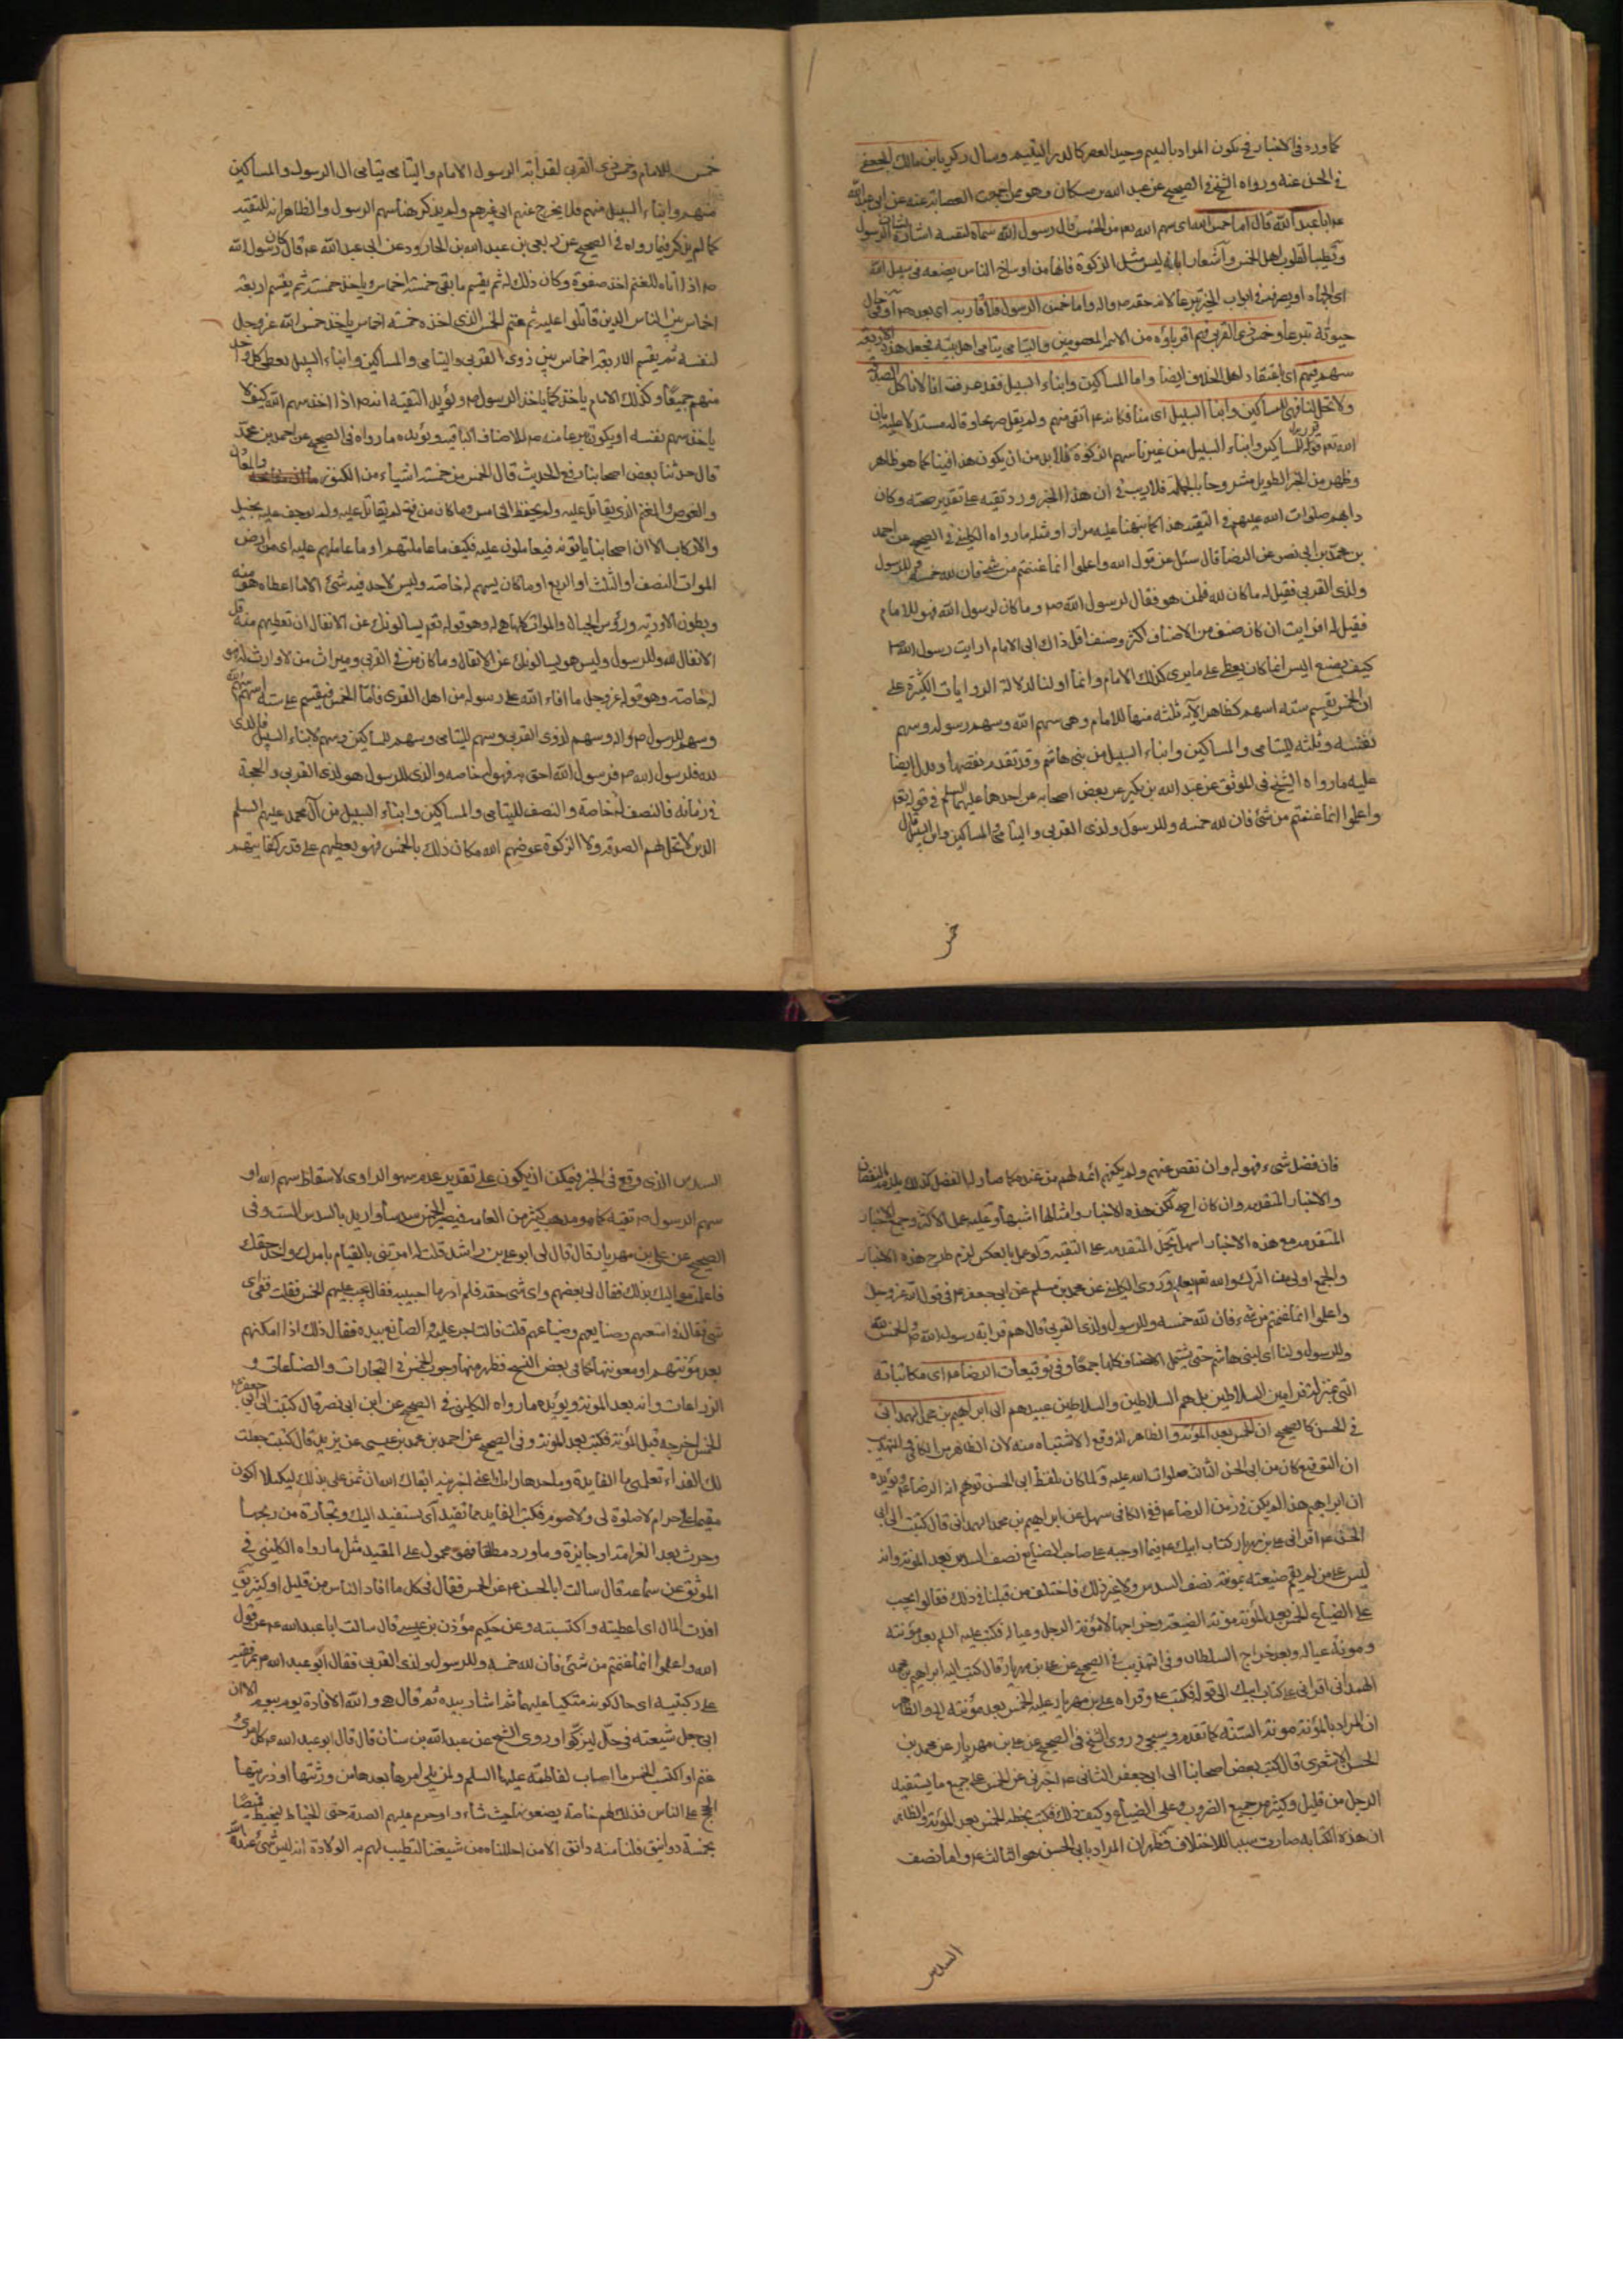 كما ورد فى الاخبار فيكون المراد باليتيم وحيد العصر كالدر اليتيم وسال زكريا بن مالك الجعفى
فى الحسن عنه ورواه الشيخ فى الصحيح عن عبد الله بن مسكان وهو ممن اجمعت العصابة عنه عن ابى عبد الله
عم ابا عبد الله قال اما خمس الله اى سهم الله تعم من الخمس قال رسول الله سماه لنفسه اشارة لشان الرسول
وتطييبا لقلوب اهل الخمس واشعارا بانه ليس مثل الزكوة فانها من اوساخ الناس يضعه فى سبيل الله
اى الجهاد او يصرفه فى ابواب الخير تبرعا لانه حقه ص واله واما خمس الرسول فلاقاربه اى بعده ص او فى حال
حيوته تبرعا وخمس ذى القربى فهم اقرباؤه من الائمة المعصومين واليتامى يتامى اهل بيته فجعل هذه الاربعة
سهم فيهم اى باعتقاد اهل الخلاف ايضا واما المساكين وابناء السبيل فقد عرفت انا لا ناكل الصدقة
ولا تحل لنا فهى للمساكين وابنا السبيل اى منا فكانه عم اتقى منهم ولم يقل صريحا وقاله مستدلا عليه بان
الله تعم قرر للمساكين وابناء السبيل من غيرنا سهم الزكوة فلا بد من ان يكون هذا فينا كما هو ظاهر
وظهر من الخبر الطويل مشروحا بالجملة فلا ريب فى ان هذا الخبر ورد تقية على تقدير صحته وكان
دابهم صلوات الله عليهم فى التقية هذا كما نبهنا عليه مرارا ومثله ما رواه الكلينى فى الصحيح عن احمد
بن محمد بن ابى نصر عن الرضا قال سئل عن قول الله واعلموا انما غنمتم من شئ فان لله خمسه وللرسول
ولذى القربى فقيل له ما كان لله فلمن هو فقال لرسول الله ص وما كان لرسول الله فهو للامام
فقيل له افرايت ان كان صنف من الاصناف اكثر وصنف اقل ذاك الى الامام ارايت رسول الله ص
كيف يصنع اليس انما كان يعطى على ما يرى كذلك الامام وانما اولنا لدلالة الروايات الكثيرة على
ان الخمس يقسم ستة اسهم كظاهر الآية ثلثة منها للامام وهى سهم الله وسهم رسوله وسهم
نفسه وثلثة لليتامى والمساكين وابناء السبيل من بنى هاشم وقد تقدم بعضها ويدل ايضا
عليه ما رواه الشيخ فى الموثق عن عبد الله بن بكير عن بعض اصحابه عن احدهما عليهما السلم فى قوله تعم
واعلموا انما غنمتم من شئ فان لله خمسه وللرسول ولذى القربى واليتامى والمساكين وابن السبيل قال
خمس
خمس الله للامام وخمس ذى القربى لقرابة الرسول الامام واليتامى يتامى ال الرسول والمساكين
منهم وابناء السبيل منهم فلا يخرج عنهم الى غيرهم ولم يذكر هنا سهم الرسول والظاهر انه للتقية
كما لم يذكر فيما رواه فى الصحيح عن ربعى بن عبد الله بن الجارود عن ابى عبد الله عم قال كان رسول الله
ص اذا اتاه المغنم اخذ صفوه وكان ذلك له ثم يقسم ما بقى خمسة اخماس وياخذ خمسه ثم يقسم اربعة
اخماس بين الناس الذين قاتلوا عليه ثم قسم الخمس الذى اخذه خمسة اخماس ياخذ خمس الله عز وجل
لنفسه ثم يقسم الاربعة اخماس بين ذوى القربى واليتامى والمساكين وابناء السبيل يعطى كل واحد
منهم جميعا وكذلك الامام ياخذ كما ياخذ الرسول ص ويؤيد التقية انه ص اذا اخذ سهم الله كيف لا
ياخذ سهم نفسه او يكون تبرعا منه ص للاصناف الباقية ويؤيده ما رواه فى الصحيح عن احمد بن محمد
قال حدثنا بعض اصحابنا رفع الحديث قال الخمس من خمسة اشياء من الكنوز والمعادن
والغوص والمغنم الذى يقاتل عليه ولم يحفظ الخامس وما كان من فتح لم يقاتل عليه ولم يوجف عليه بخيل
ولا ركاب الا ان اصحابنا ياتونه فيعاملون عليه فكيف ما عاملتهم او ما عاملهم عليه اى من ارض
الموات النصف او الثلث او الربع او ما كان يسهم له خاصة وليس لاحد فيه شئ الا ما اعطاه هو منه
وبطون الاودية ورؤس الجبال والموات كلها هى له وهو قوله تعم يسالونك عن الانفال ان تعطيهم منه قل
الانفال لله وللرسول وليس هو يسالونك عن الانفال وما كان من فى القرى وميراث من لا وارث له فهو
له خاصة وهو قوله عز وجل ما افاء الله على رسوله من اهل القرى فاما الخمس فيقسم على ستة اسهم سهم لله
وسهم للرسول ص واله وسهم لذوى القربى وسهم لليتامى وسهم للمساكين وسهم لابناء السبيل فالذى
لله فلرسول الله ص فرسول الله احق به فهو له خاصه والذى للرسول هو لذى القربى والحجة
فى زمانه فالنصف له خاصة والنصف لليتامى والمساكين وابناء السبيل من آل محمد عليهم السلم
الذين لا تحل لهم الصدقة ولا الزكوة عوضهم الله مكان ذلك بالخمس فهو يعطيهم على قدر كفايتهم
فان فضل شئ فهو له وان نقص عنهم ولم يكفهم اتمه لهم من عنده كما صار له الفضل كذلك يلزمه النقصان
والاخبار المتقدمة وان كان اصح لكن هذه الاخبار وامثالها اشهر وعليه عمل الاكثر وجمع الاخبار
المتقدمة مع هذه الاخبار اسهل بحمل المتقدمة على التقية ولو عمل بالعكس لزم طرح هذه الاخبار
والجمع اولى من الترك والله تعم يعلم وروى الكلينى عن محمد بن مسلم عن ابى جعفر عم فى قول الله عز وجل
واعلموا انما غنمتم من شئ فان لله خمسه وللرسول ولذى القربى قال هم قرابة رسول الله ص والخمس لله
وللرسول ولنا اى لبنى هاشم حتى يشتمل الاصناف كلها جمعا وفى توقيعات الرضا عم اى مكاتباته
التى بمنزلة فرامين السلاطين بل هم السلاطين والسلاطين عبيدهم الى ابراهيم بن محمد الهمدانى
فى الحسن كالصحيح ان الخمس بعد المؤنة والظاهر انه وقع الاشتباه منه لان الظاهر من الكافى والتهذيب
ان التوقيع كان من ابى الحسن الثالث صلوات الله عليه ولما كان بلفظ ابى الحسن توهم انه الرضا عم ويؤيده
ان ابراهيم هذا لم يكن فى زمن الرضا عم ففى الكافى سهل عن ابراهيم بن محمد الهمدانى قال كتبت الى ابى
الحسن عم اقرانى على بن مهزيار كتاب ابيك عم فيما اوجبه على صاحب الضياع نصف السدس بعد المؤنة وانه
ليس على من لم يقم ضيعته بمؤنته نصف السدس ولا غير ذلك فاختلف من قبلنا فى ذلك فقالوا يجب
على الضياع الخمس بعد المؤنة مؤنة الضيعة وخراجها لا مؤنة الرجل وعياله فكتب عليه السلم بعد مؤنته
ومؤنة عياله وبعد خراج السلطان وفى التهذيب فى الصحيح عن على بن مهزيار قال كتب اليه ابراهيم بن محمد
الهمدانى اقرانى على كتاب ابيك الى قوله فكتب عم وقراه على بن مهزيار عليه الخمس بعد مؤنته الى والظاهر
ان المراد بالمؤنة مؤنة السنة كما تقدم وسيجئ وروى الشيخ فى الصحيح عن على بن مهزيار عن محمد بن
الحسن الاشعرى قال كتب بعض اصحابنا الى ابى جعفر الثانى عم اخبرنى عن الخمس على جميع ما يستفيد
الرجل من قليل وكثير من جميع الضروب وعلى الضياع وكيف ذلك فكتب بخطه الخمس بعد المؤنة والظاهر
ان هذه الكتابة صارت سببا للاختلاف فظهر ان المراد بابى الحسن هو الثالث عم واما نصف
السدس
السدس الذى وقع فى الخبر فيمكن ان يكون على تقدير عدم سهو الراوى لاسقاط سهم الله او
سهم الرسول ص تقية كما هو مذهب كثير من العامة فيصير الخمس سدسا واريد بالسدس الست وفى
الصحيح عن على بن مهزيار قال قال لى ابو على بن راشد قلت له امرتنى بالقيام بامرك واخذ حقك
فاعلمت مواليك بذلك فقال لى بعضهم واى شئ حقه فلم ادر ما اجيبه فقال يجب عليهم الخمس فقلت ففى اى
شئ فقال فى امتعتهم وضياعهم قلت فالتاجر عليه والصانع بيده فقال ذلك اذا امكنهم
بعد مؤنتهم او معونتها كما فى بعض النسخ فظهر منها وجوب الخمس فى التجارات والصناعات و
الزراعات وانه بعد المؤنة ويؤيده ما رواه الكلينى فى الصحيح عن ابن ابى نصر قال كتبت الى ابى جعفر عم
الخمس اخرجه قبل المؤنة فكتب بعد المؤنة وفى الصحيح عن احمد بن محمد بن عيسى عن يزيد قال كتبت جعلت
لك الفداء تعلمنى ما الفايدة وما حدها رايك ابقاك الله ان تمن على بذلك لكيلا اكون
مقيما على حرام لا صلوة لى ولا صوم فكتب الفايدة مما تفيد اى يستفيد اليك وتجارة من ربحها
وحرث بعد الغرامة او جايزة وما ورد مطلقا فهو محمول على المقيد مثل ما رواه الكلينى فى
الموثق عن سماعة قال سالت ابا الحسن عم عن الخمس فقال فى كل ما افاد الناس من قليل او كثير يق
افدت المال اى اعطيته واكتسبته وعن حكيم مؤذن بن عيسى قال سالت ابا عبد الله عم عن قول
الله واعلموا انما غنمتم من شئ فان لله خمسه وللرسول ولذى القربى فقال ابو عبد الله عم بمرفقيه
على ركبتيه اى حال كونه متكيا عليهما ثم اشار بيده ثم قال هى والله الافادة يوم بيوم الا ان
ابى جعل شيعته فى حل ليزكوا وروى الشيخ عن عبد الله بن سنان قال قال ابو عبد الله عم كل امرئ
غنم او اكتسب الخمس مما اصاب لفاطمة عليها السلم ولمن يلى امرها بعدها من ورثتها او ذريتها
الحجج على الناس فذلك لهم خاصة يضعونه حيث شاؤا وحرم عليهم الصدقة حتى الخياط ليخيط قميصا
بخمسة دوانيق فلنا منه دانق الا من احللناه من شيعتنا لتطيب لهم به الولادة انه ليس من شئ عند الله